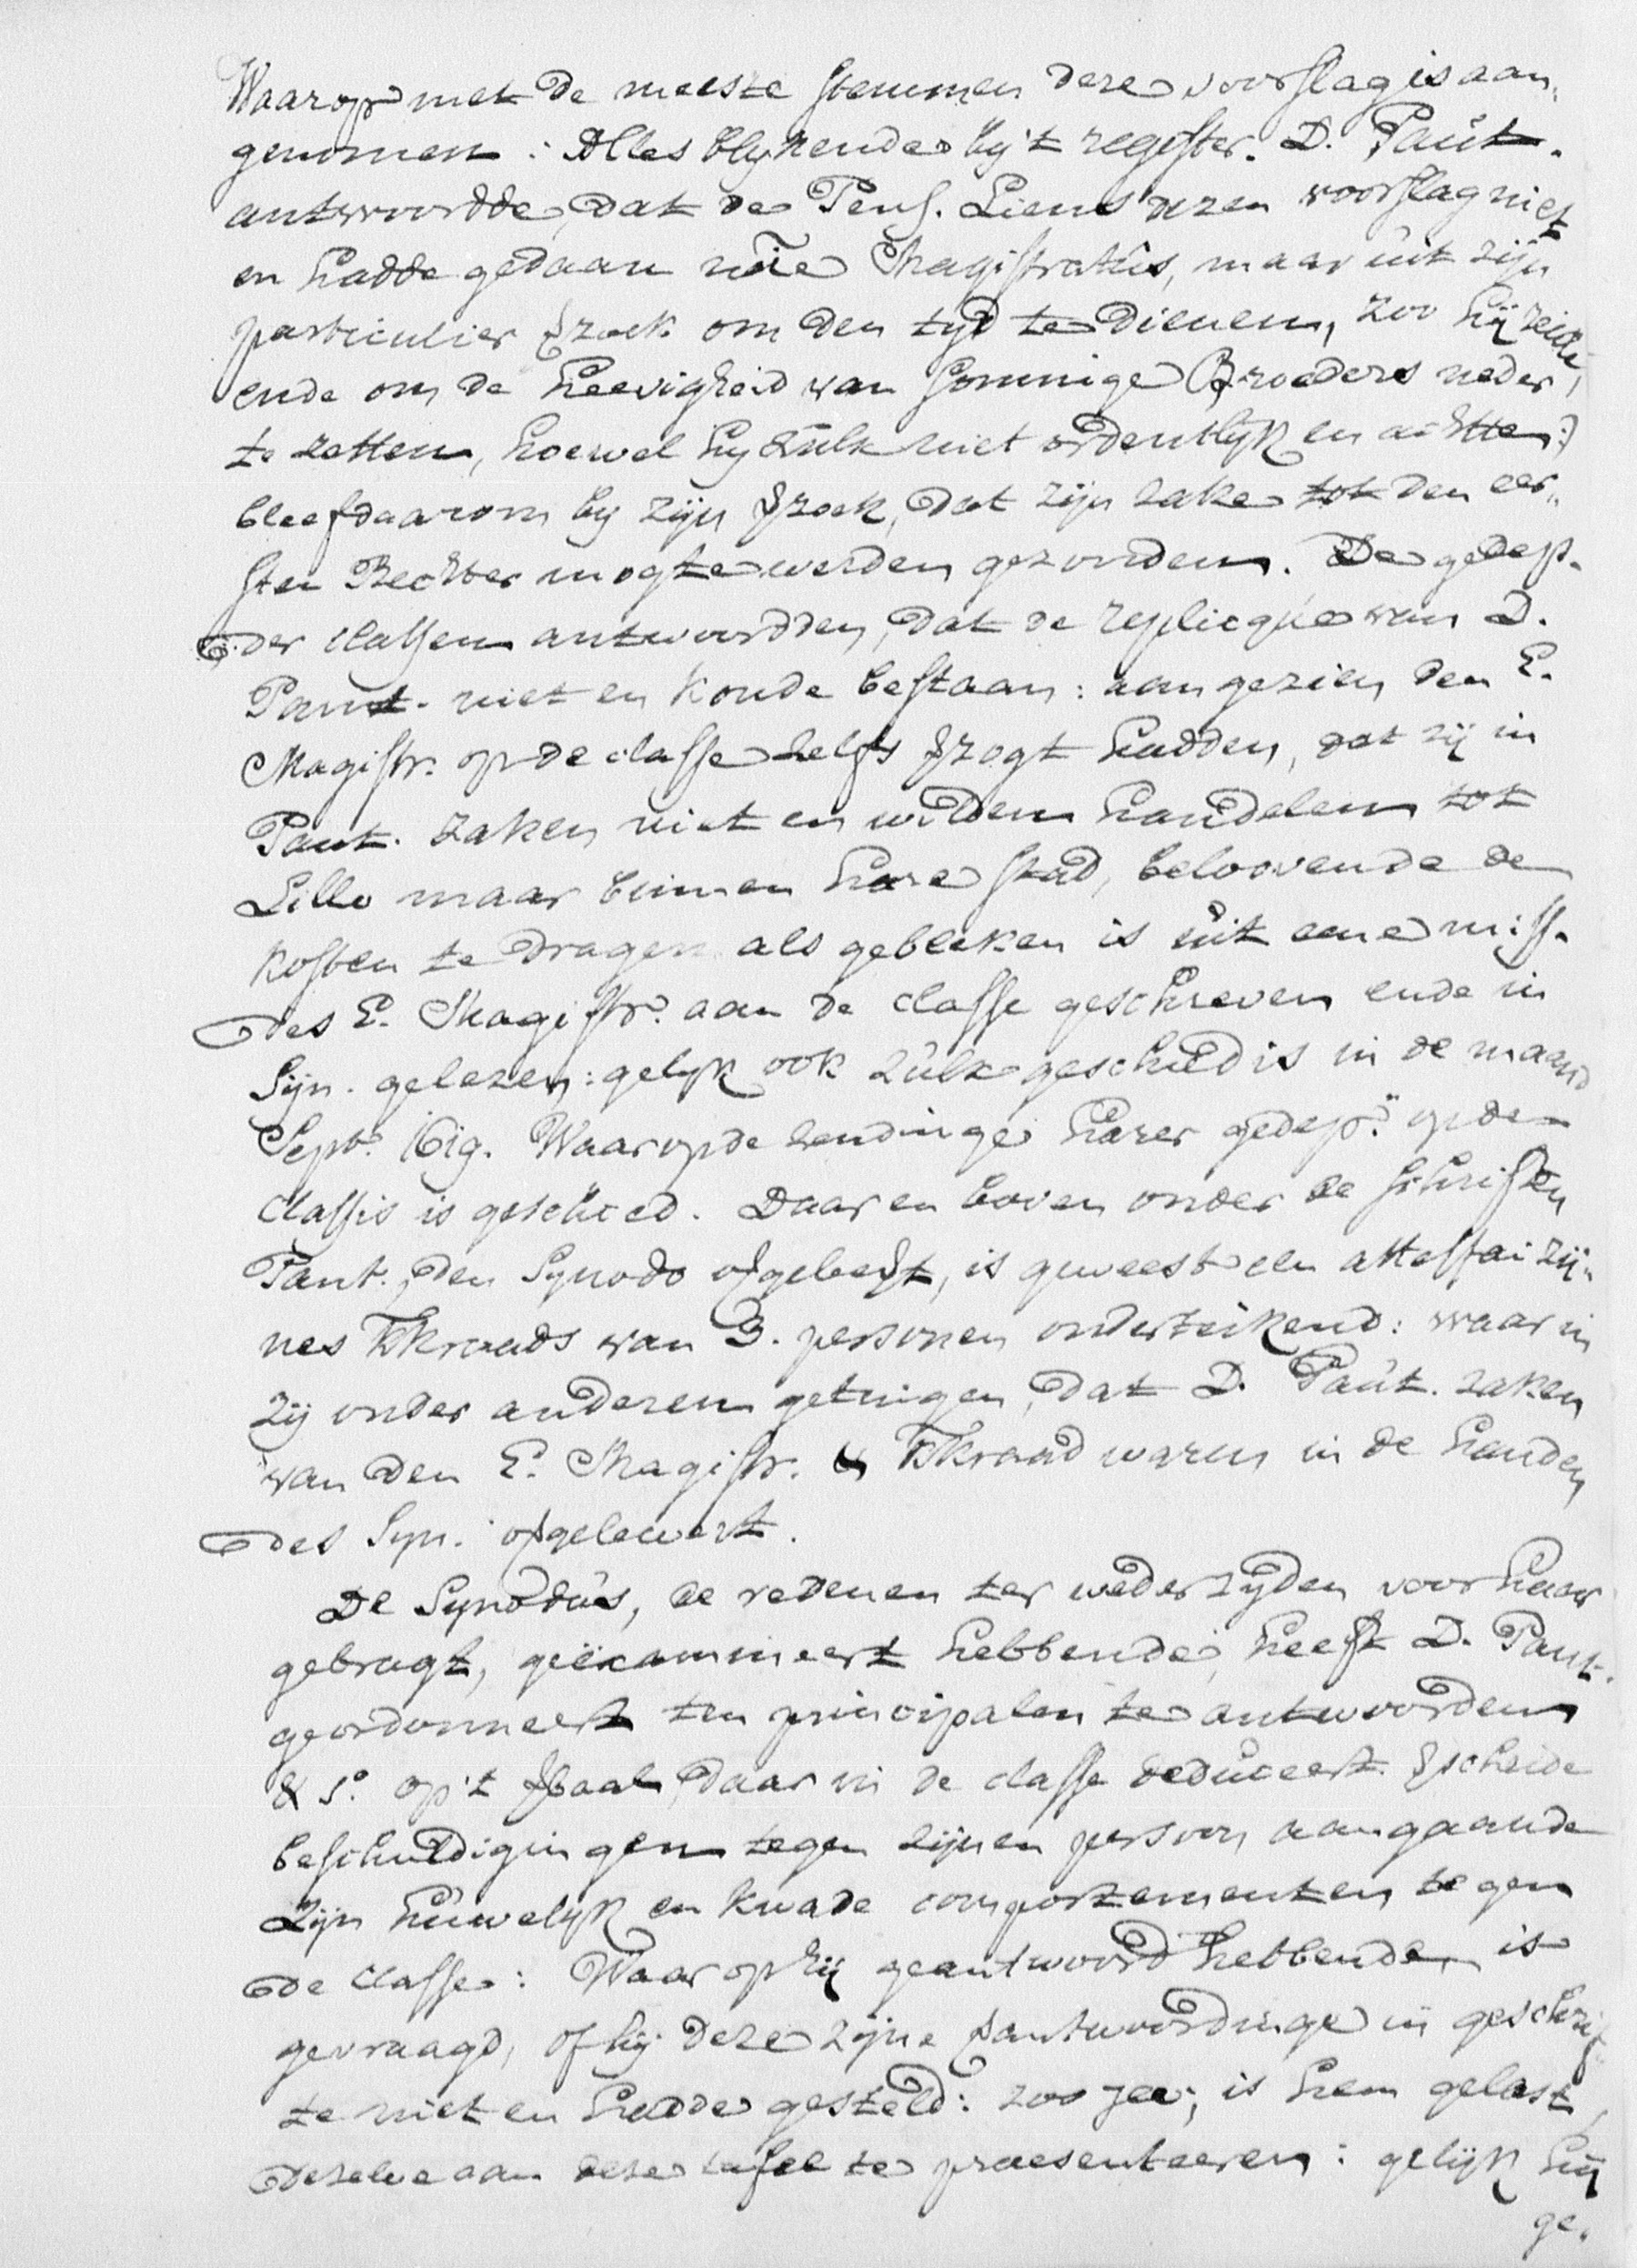 Waarop met de meeste stemmen deze voorslag is aan„
genomen: Alles blykende by't register. D. Paút.
antwoordde, dat de Pens. Liens dezen voorslag niet
en hadde gedaan nõie Magistratûs, maar uit zijn
particulier ꝟzoek om den tyd te dienen, zoo hij zeide,
ende om de heevigheid van sommige Broeders neder
te zetten, hoewel hy zulk niet ordentlyk en achtte:)
bleef daarom by zijn ꝟzoek, dat zijn zake tot den eer„
sten Rechter mogte werden gezonden. De gedep.
der classen antwoordden, dat de replicque van D.
Paut. niet en konde bestaan: aangezien den E.
Magistr. op de classe zelfs ꝟzogt hadden, dat zij in
Paut. zaken niet en wilden handelen tot
Lillo maar binnen hare stad, beloovende de
kosten te dragen als gebleken is uit eene miss.
des E. Magistr. aan de classe geschreven ende in
Sijn. gelezen: gelyk ook zulx geschied is in de maand
Septr. 1619. Waarop de zendinge harer gedep. op de
classis is geschied. Daar en boven onder de schriften
Paut. den Synodo ovgeleeft, is geweest een attestai zij„
nes kkraads van 3. personen onderteikend: waar in
zij onder anderen getuigen, dat D. Paût. zaken
van den E. Magistr. & kkraad waren in de handen
des Syn. ovgelevert.
De Synodûs, de redenen ter wederzyden voor haar
gebragt, geëxammeert hebbende, heeft D. Paut.
geordonneert ten principalen te antwoorden
& s. op't ꝟbaal, daar in de classe deduceert ꝟscheide
beschuldigingen tegen zijnen persoon aangaande
Zijn huwelyk en kwade comportementen tegen
de classe: Waar op hij geantwoord hebbende, is
gevraagd, of hij deze zijne ꝟantwoordinge in geschrif„
te niet en hadde gesteld: zoo jae; is hem gelast,
dezelve aan deze tafel te praesenteeren: gelijk hij
ge.